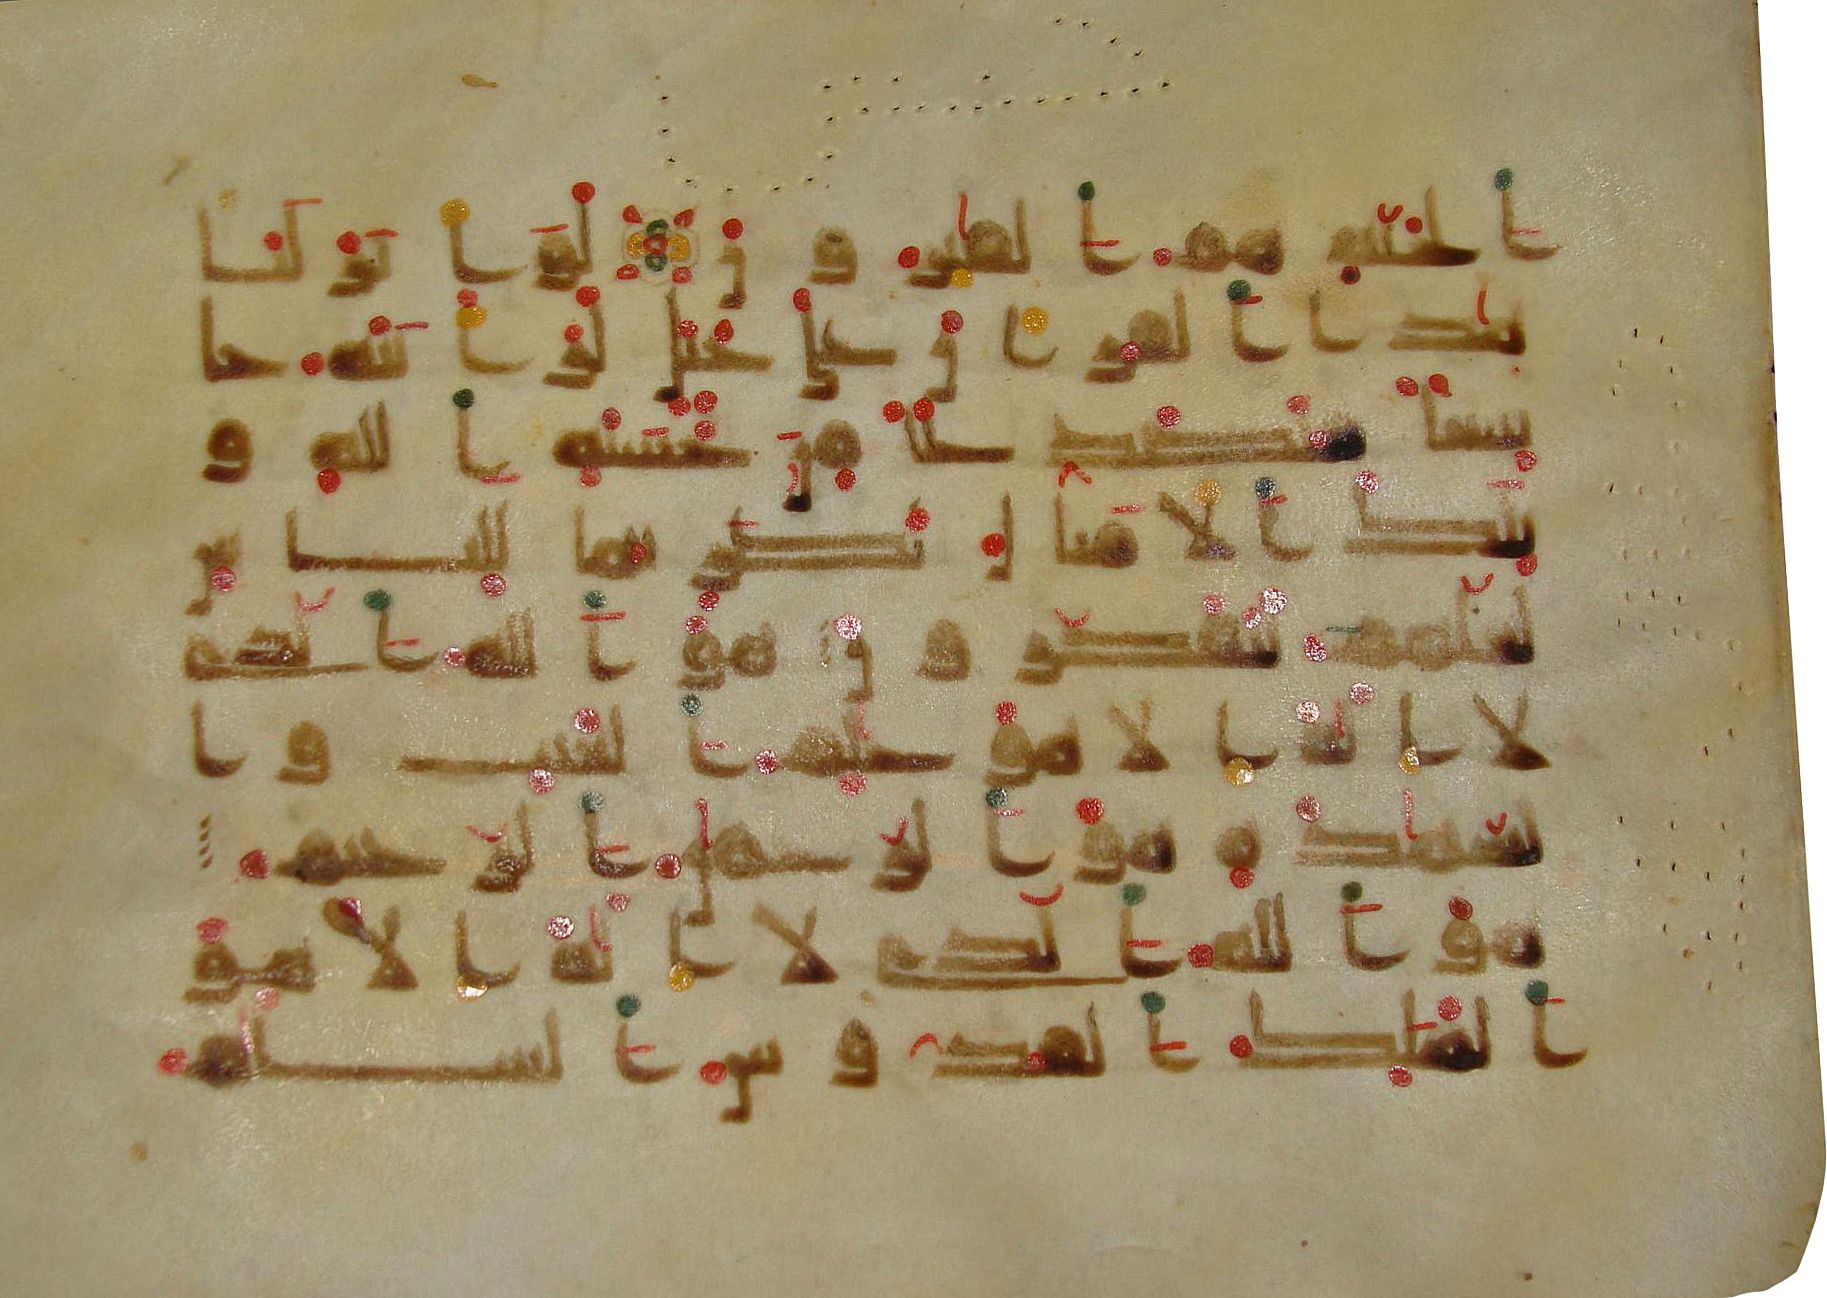 الجنه هم الفئزون لو انزلنا
هذا القران على جبل لرايته خا
شعا متصدعا من خشيه الله و
تلك الامثل نضربها للناس
لعلهم يتفكرون هو الله الذى
لا اله الا هو علم الغيب وا
لشهده هو الرحمن الرحيم
هو الله الذى لا اله الا هو
الملك القدوس السلم